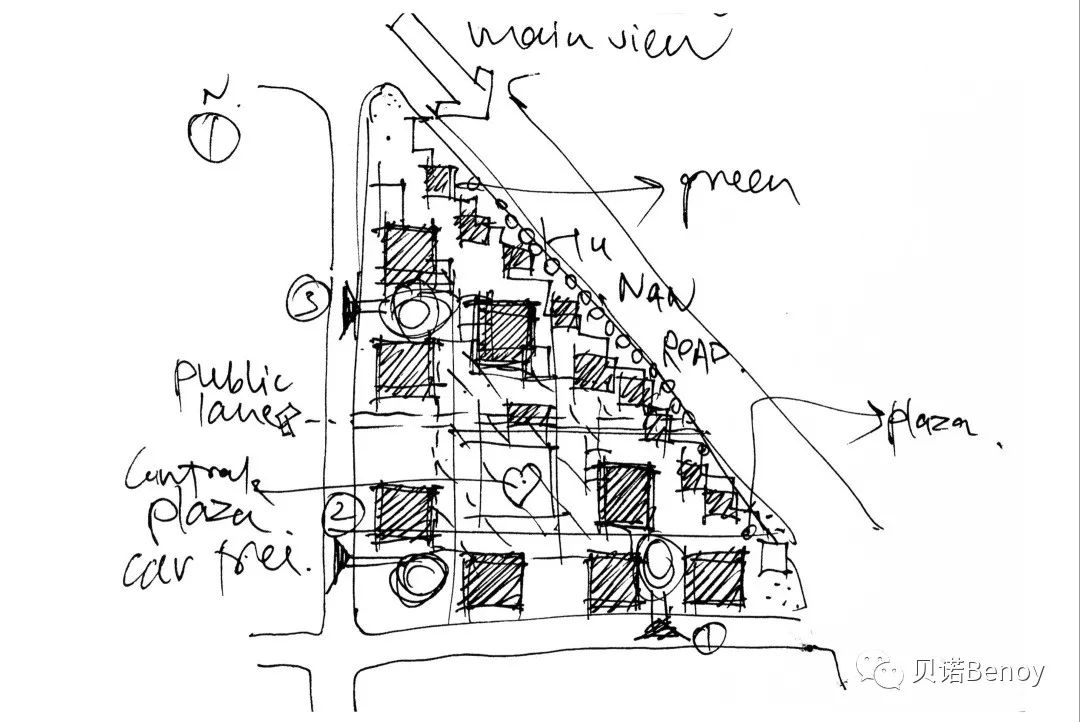 main view
N.
green
Hu
NAN
ROAD
3
public
lane
plaza.
Central
plaza
car frei.
2
1
贝诺Benoy